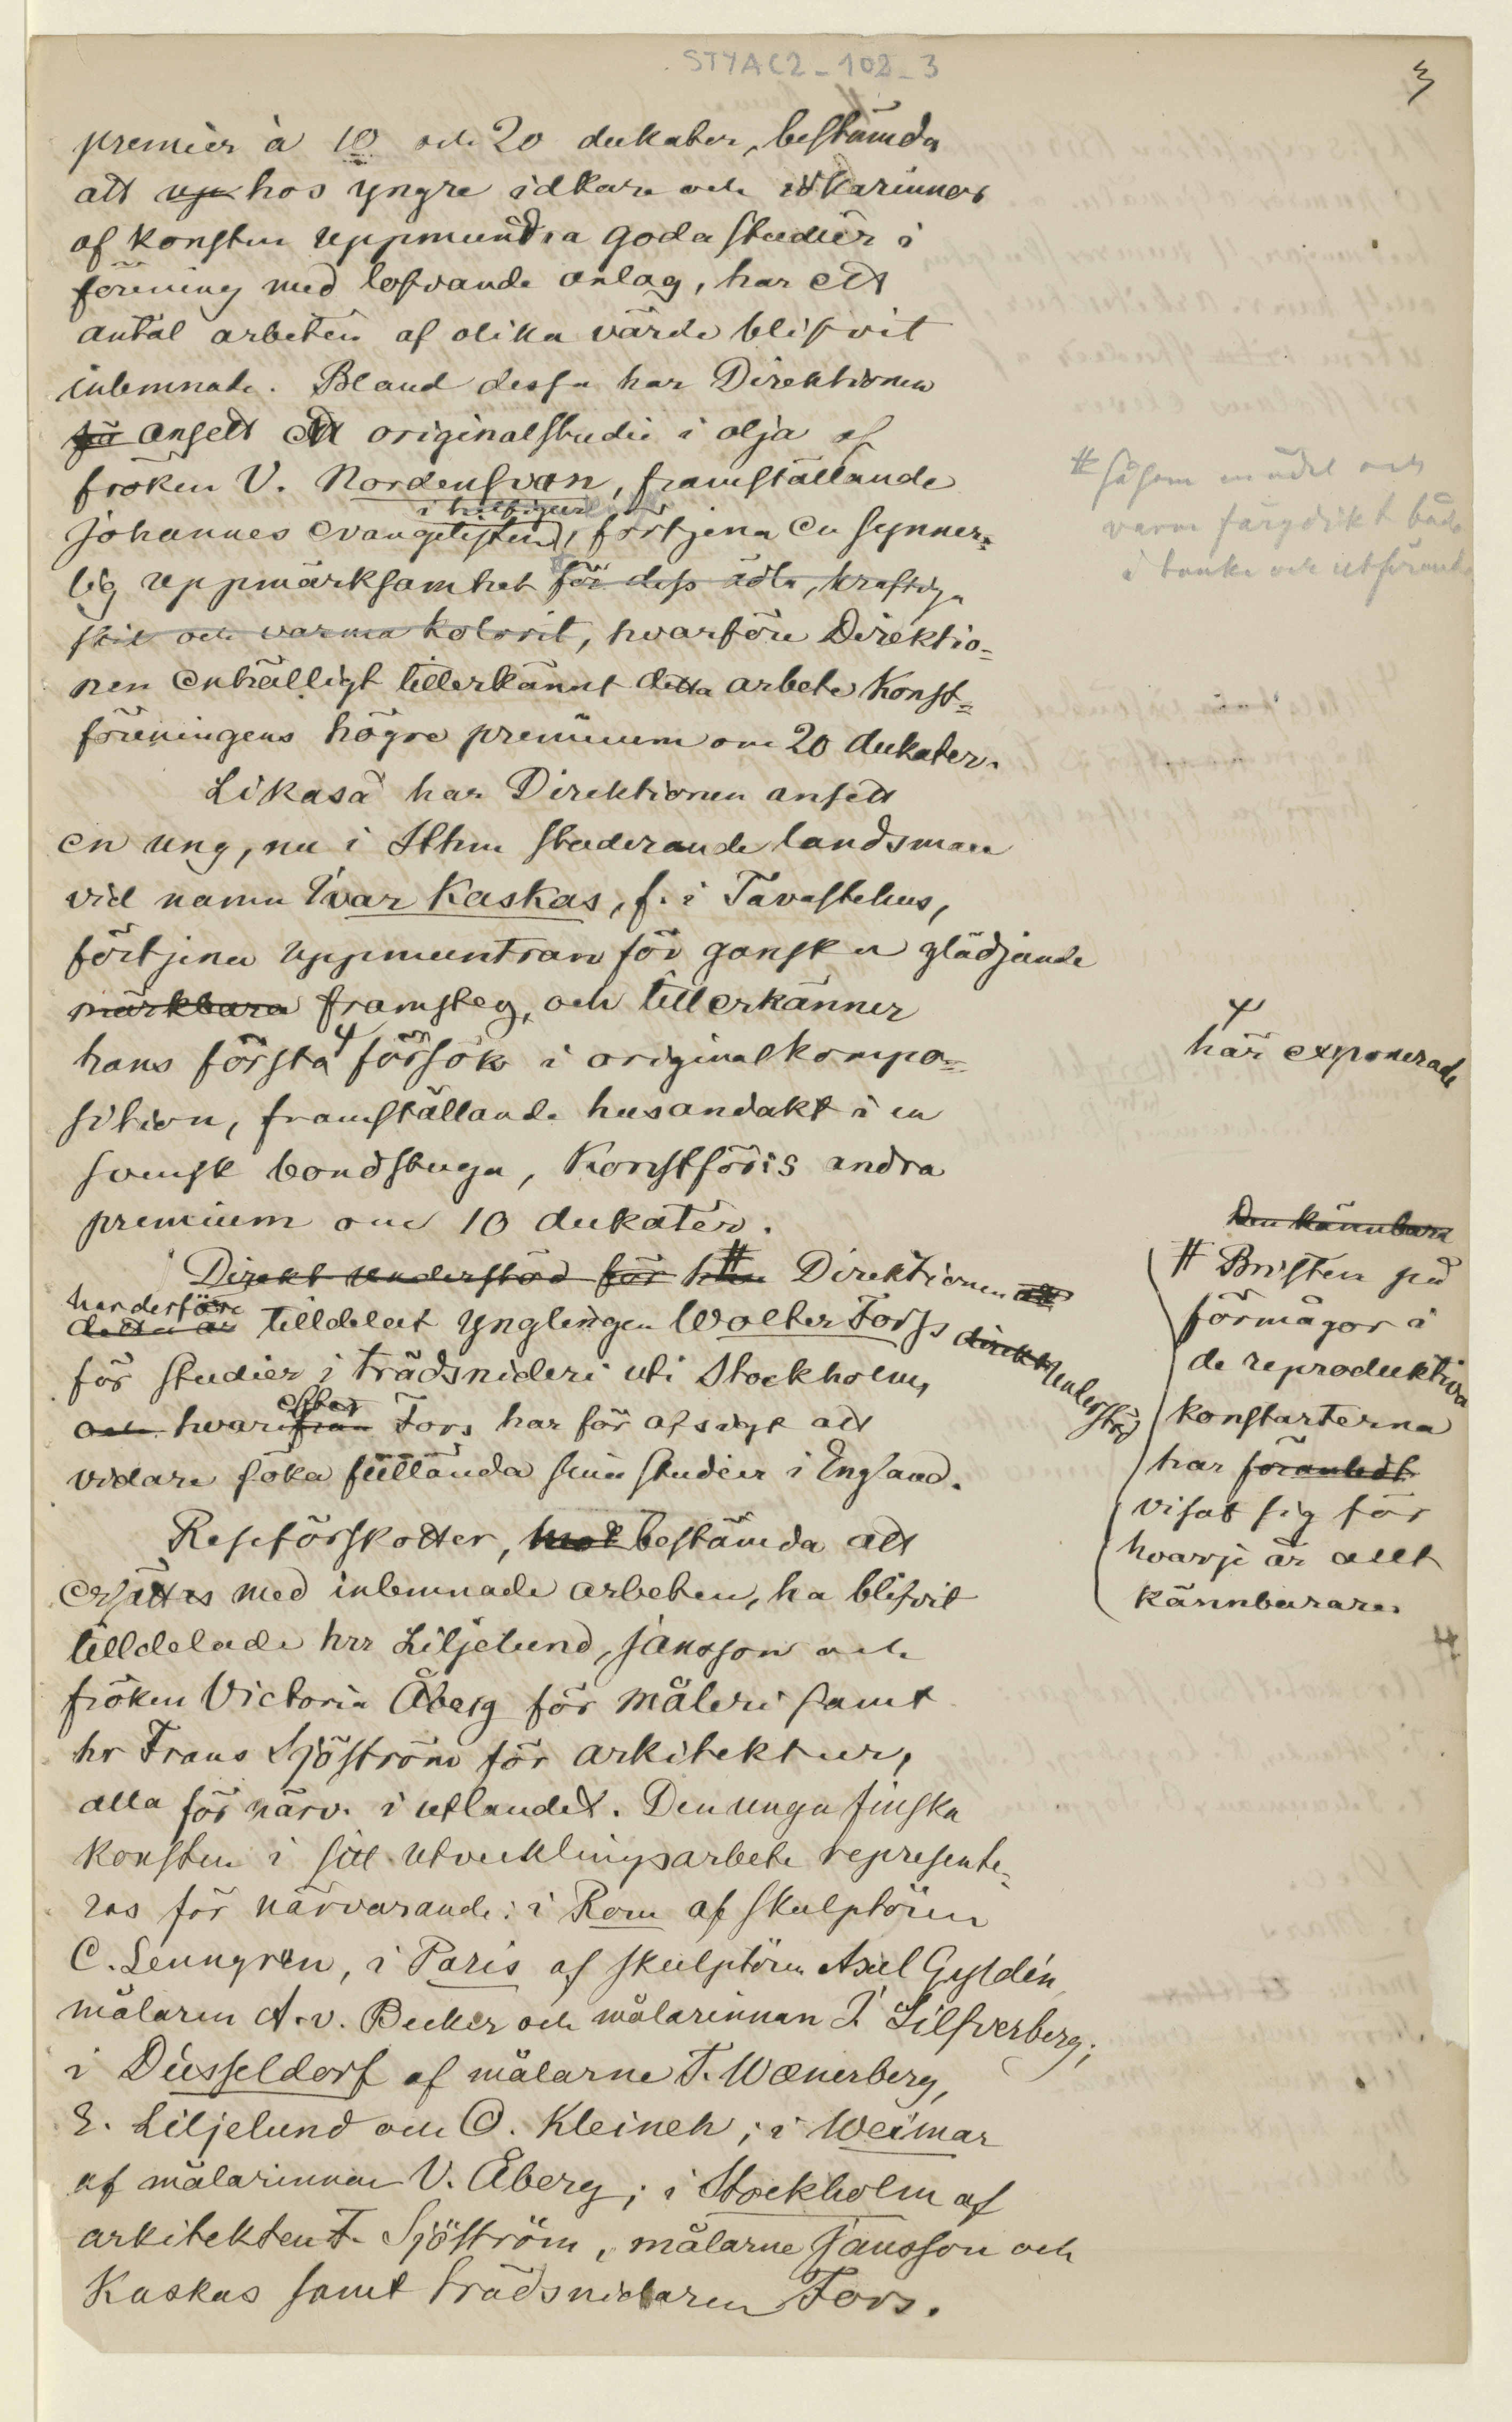 STYAC2_102_3
3
premier à 10 och 20 dukater, bestämda
att hos yngre idkare och idkarinnor
af konsten uppmuntra goda studier i
förening med lofvande anlag, har ett
antal arbeten af olika värde blifvit
inlemnade. Bland dessa har Direktionen
ansett ett originalstudie i olja af
fröken V. Nordensvan, framställande
i halffigur
Johannes evangelisten, förtjena en synner=
lig uppmärksamhet för dess ädla, kraftiga
stil och varma kolorit, hvarföre Direktio=
nen enhälligt tillerkännt detta arbete Konst=
föreningens högre premium om 20 dukater.
# såsom ädel och
varm färgdikt både
i tanke och utförande
Likaså har Direktionen ansett
en ung, nu i Sthm studerande landsman
vid namn Ivar Kaskas, f. i Tavastehus,
förtjena uppmuntran för ganska glädjande
märkbara framsteg, och tillerkänner
hans första försök i originalkompo=
sition, framställande husandakt i en
svensk bondstuga, Konstför:s andra
premium om 10 dukater.
här exponerade
Direkt understöd för # Direktionen
har derföre
tilldelat ynglingen Wolter Forss direkt understöd
för studier i trädsnideri uti Stockholm,
efter
och hvarifrån Fors har för afsigt att
vidare söka fullända sina studier i England.
Den kännbara
# Bristen på
förmågor i
de reproduktiva
konstarterna
har föranledt
visat sig för
hvarje år allt
kännbarare.
Reseförskotter, bestämda att
ersättas med inlemnade arbeten, ha blifvit
tilldelade hrr Liljelund, Jansson och
fröken Victoria Åberg för måleri samt
hr Frans Sjöström för arkitektur,
alla för närv. i utlandet. Den unga finska
konsten i sitt utvecklingsarbete represente=
ras för närvarande: i Rom af skulptören
C. Lenngren, i Paris af skulptören Axel Gyldén,
målaren A. v. Becker och målarinnan I. Silfverberg;
i Düsseldorf af målarne T. Wænerberg,
E. Liljelund och O. Kleineh; i Weimar
af målarinnan V. Åberg; i Stockholm af
arkitekten F. Sjöström, målarne Jansson och
Kaskas samt trädsnidaren Fors.